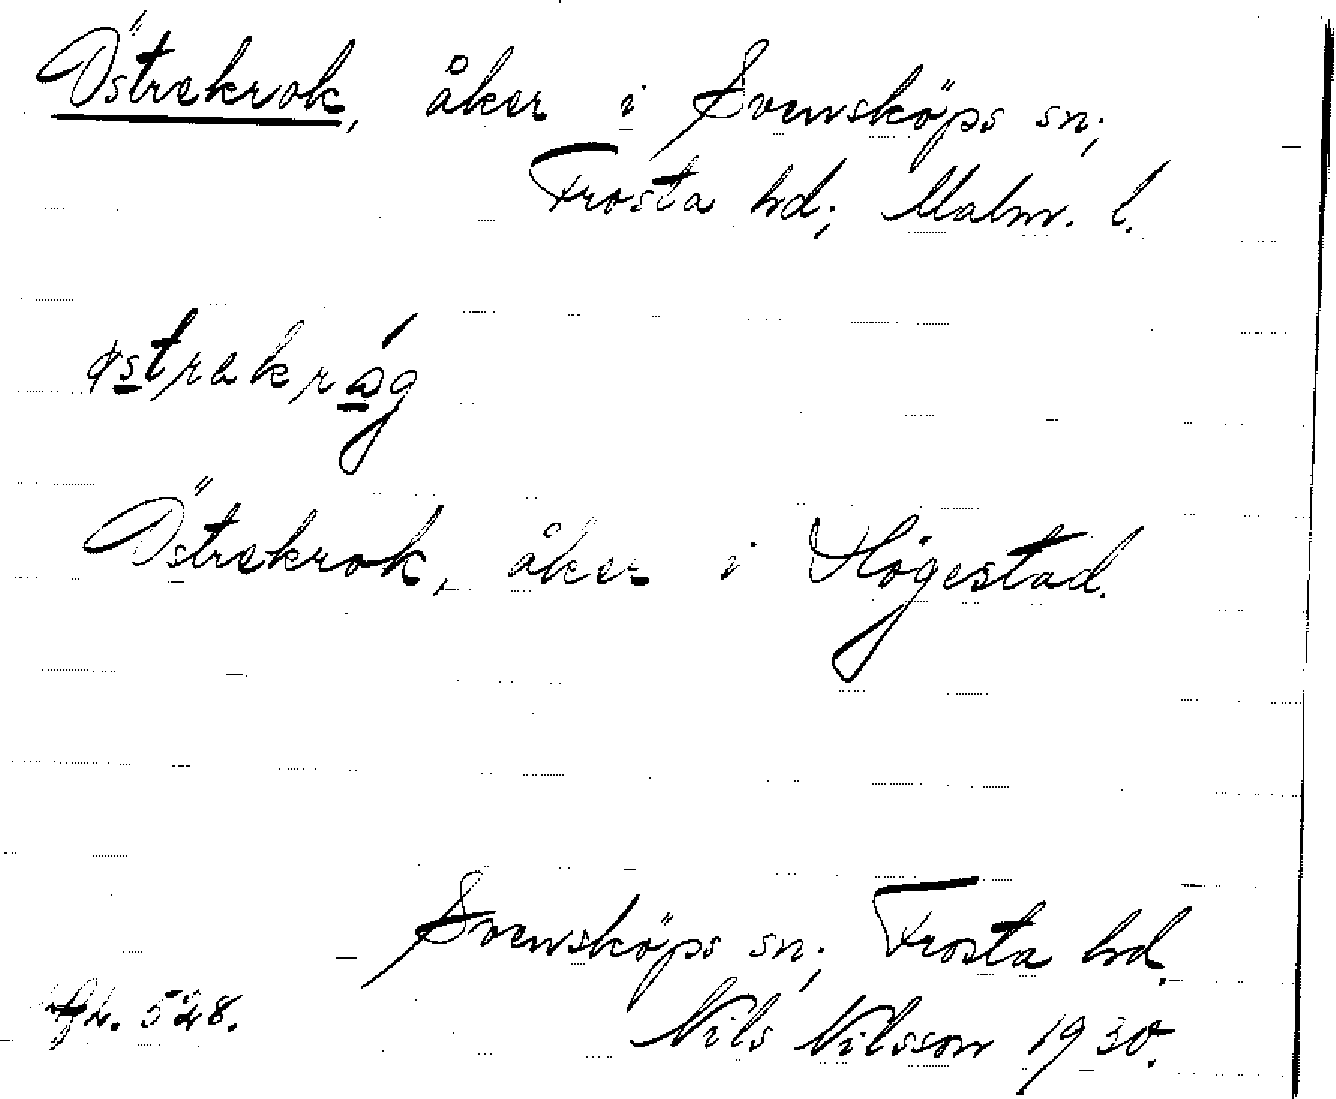 Östrekrok, åker i Svensköps sn;
Frosta hd; Malm. l.
östrekråg
Östrekrok, åker i Högestad.
Svensköps sn; Frosta hd.
528. Nils Nilsson 1930.